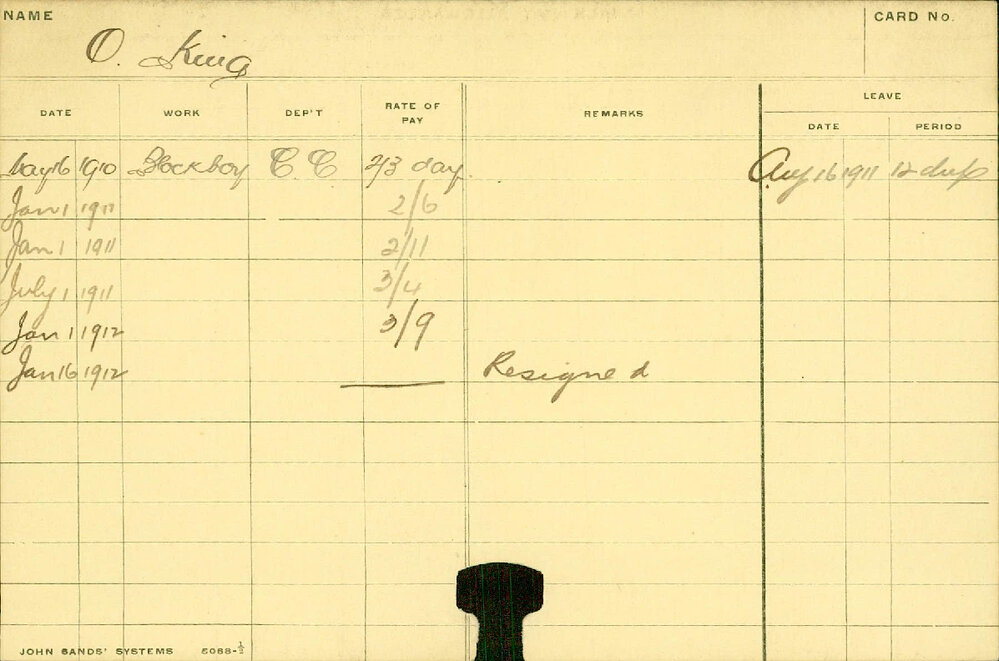 NAME
CARD No.
O. King
DATE WORK DEP'T RATE OF PAY REMARKS LEAVE
DATE PERIOD
May 16 1910 Blockboy C. C 2/3 day. Aug 16 1911 12 days
Jan 1 1911 2/6
Jan 1 1911 2/11
July 1 1911 3/4
Jan 1 1912 3/9
Jan 16 1912 Resigned
JOHN SANDS' SYSTEMS 5068-½